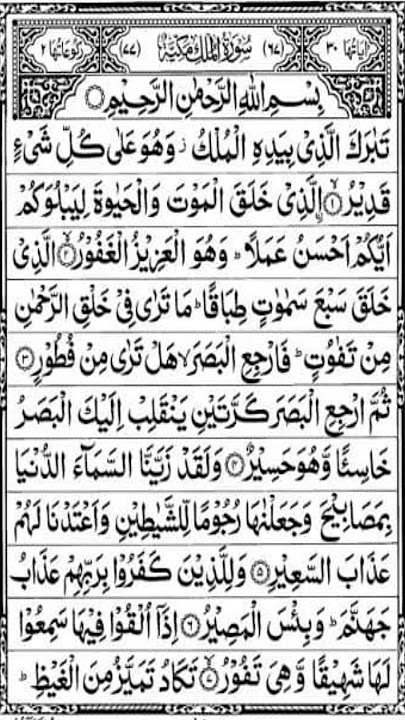 اٰیَاتُهَا ۳۰ (۶۷) سُوْرَةُ الْمُلْكِ مَكِّیَّةٌ (۷۷) رُكُوْعَاتُهَا ۲
بِسْمِ اللّٰهِ الرَّحْمٰنِ الرَّحِیْمِ
تَبٰرَكَ الَّذِیْ بِیَدِهِ الْمُلْكُ ز وَهُوَ عَلٰی كُلِّ شَیْءٍ
قَدِیْرُ ۙ﴿۱﴾ اۨلَّذِیْ خَلَقَ الْمَوْتَ وَالْحَیٰوةَ لِیَبْلُوَكُمْ
اَیُّكُمْ اَحْسَنُ عَمَلًا ؕ وَهُوَ الْعَزِیْزُ الْغَفُوْرُ ۙ﴿۲﴾ الَّذِیْ
خَلَقَ سَبْعَ سَمٰوٰتٍ طِبَاقًا ؕ مَا تَرٰی فِیْ خَلْقِ الرَّحْمٰنِ
مِنْ تَفٰوُتٍ ؕ فَارْجِعِ الْبَصَرَ ۙ هَلْ تَرٰی مِنْ فُطُوْرٍ ﴿۳﴾
ثُمَّ ارْجِعِ الْبَصَرَ كَرَّتَیْنِ یَنْقَلِبْ اِلَیْكَ الْبَصَرُ
خَاسِئًا وَّهُوَ حَسِیْرٌ ﴿۴﴾ وَلَقَدْ زَیَّنَّا السَّمَآءَ الدُّنْیَا
بِمَصَابِیْحَ وَجَعَلْنٰهَا رُجُوْمًا لِّلشَّیٰطِیْنِ وَاَعْتَدْنَا لَهُمْ
عَذَابَ السَّعِیْرِ ﴿۵﴾ وَلِلَّذِیْنَ كَفَرُوْا بِرَبِّهِمْ عَذَابُ
جَهَنَّمَ ؕ وَبِئْسَ الْمَصِیْرُ ﴿۶﴾ اِذَاۤ اُلْقُوْا فِیْهَا سَمِعُوْا
لَهَا شَهِیْقًا وَّهِیَ تَفُوْرُ ۙ﴿۷﴾ تَكَادُ تَمَیَّزُ مِنَ الْغَیْظِ ؕ